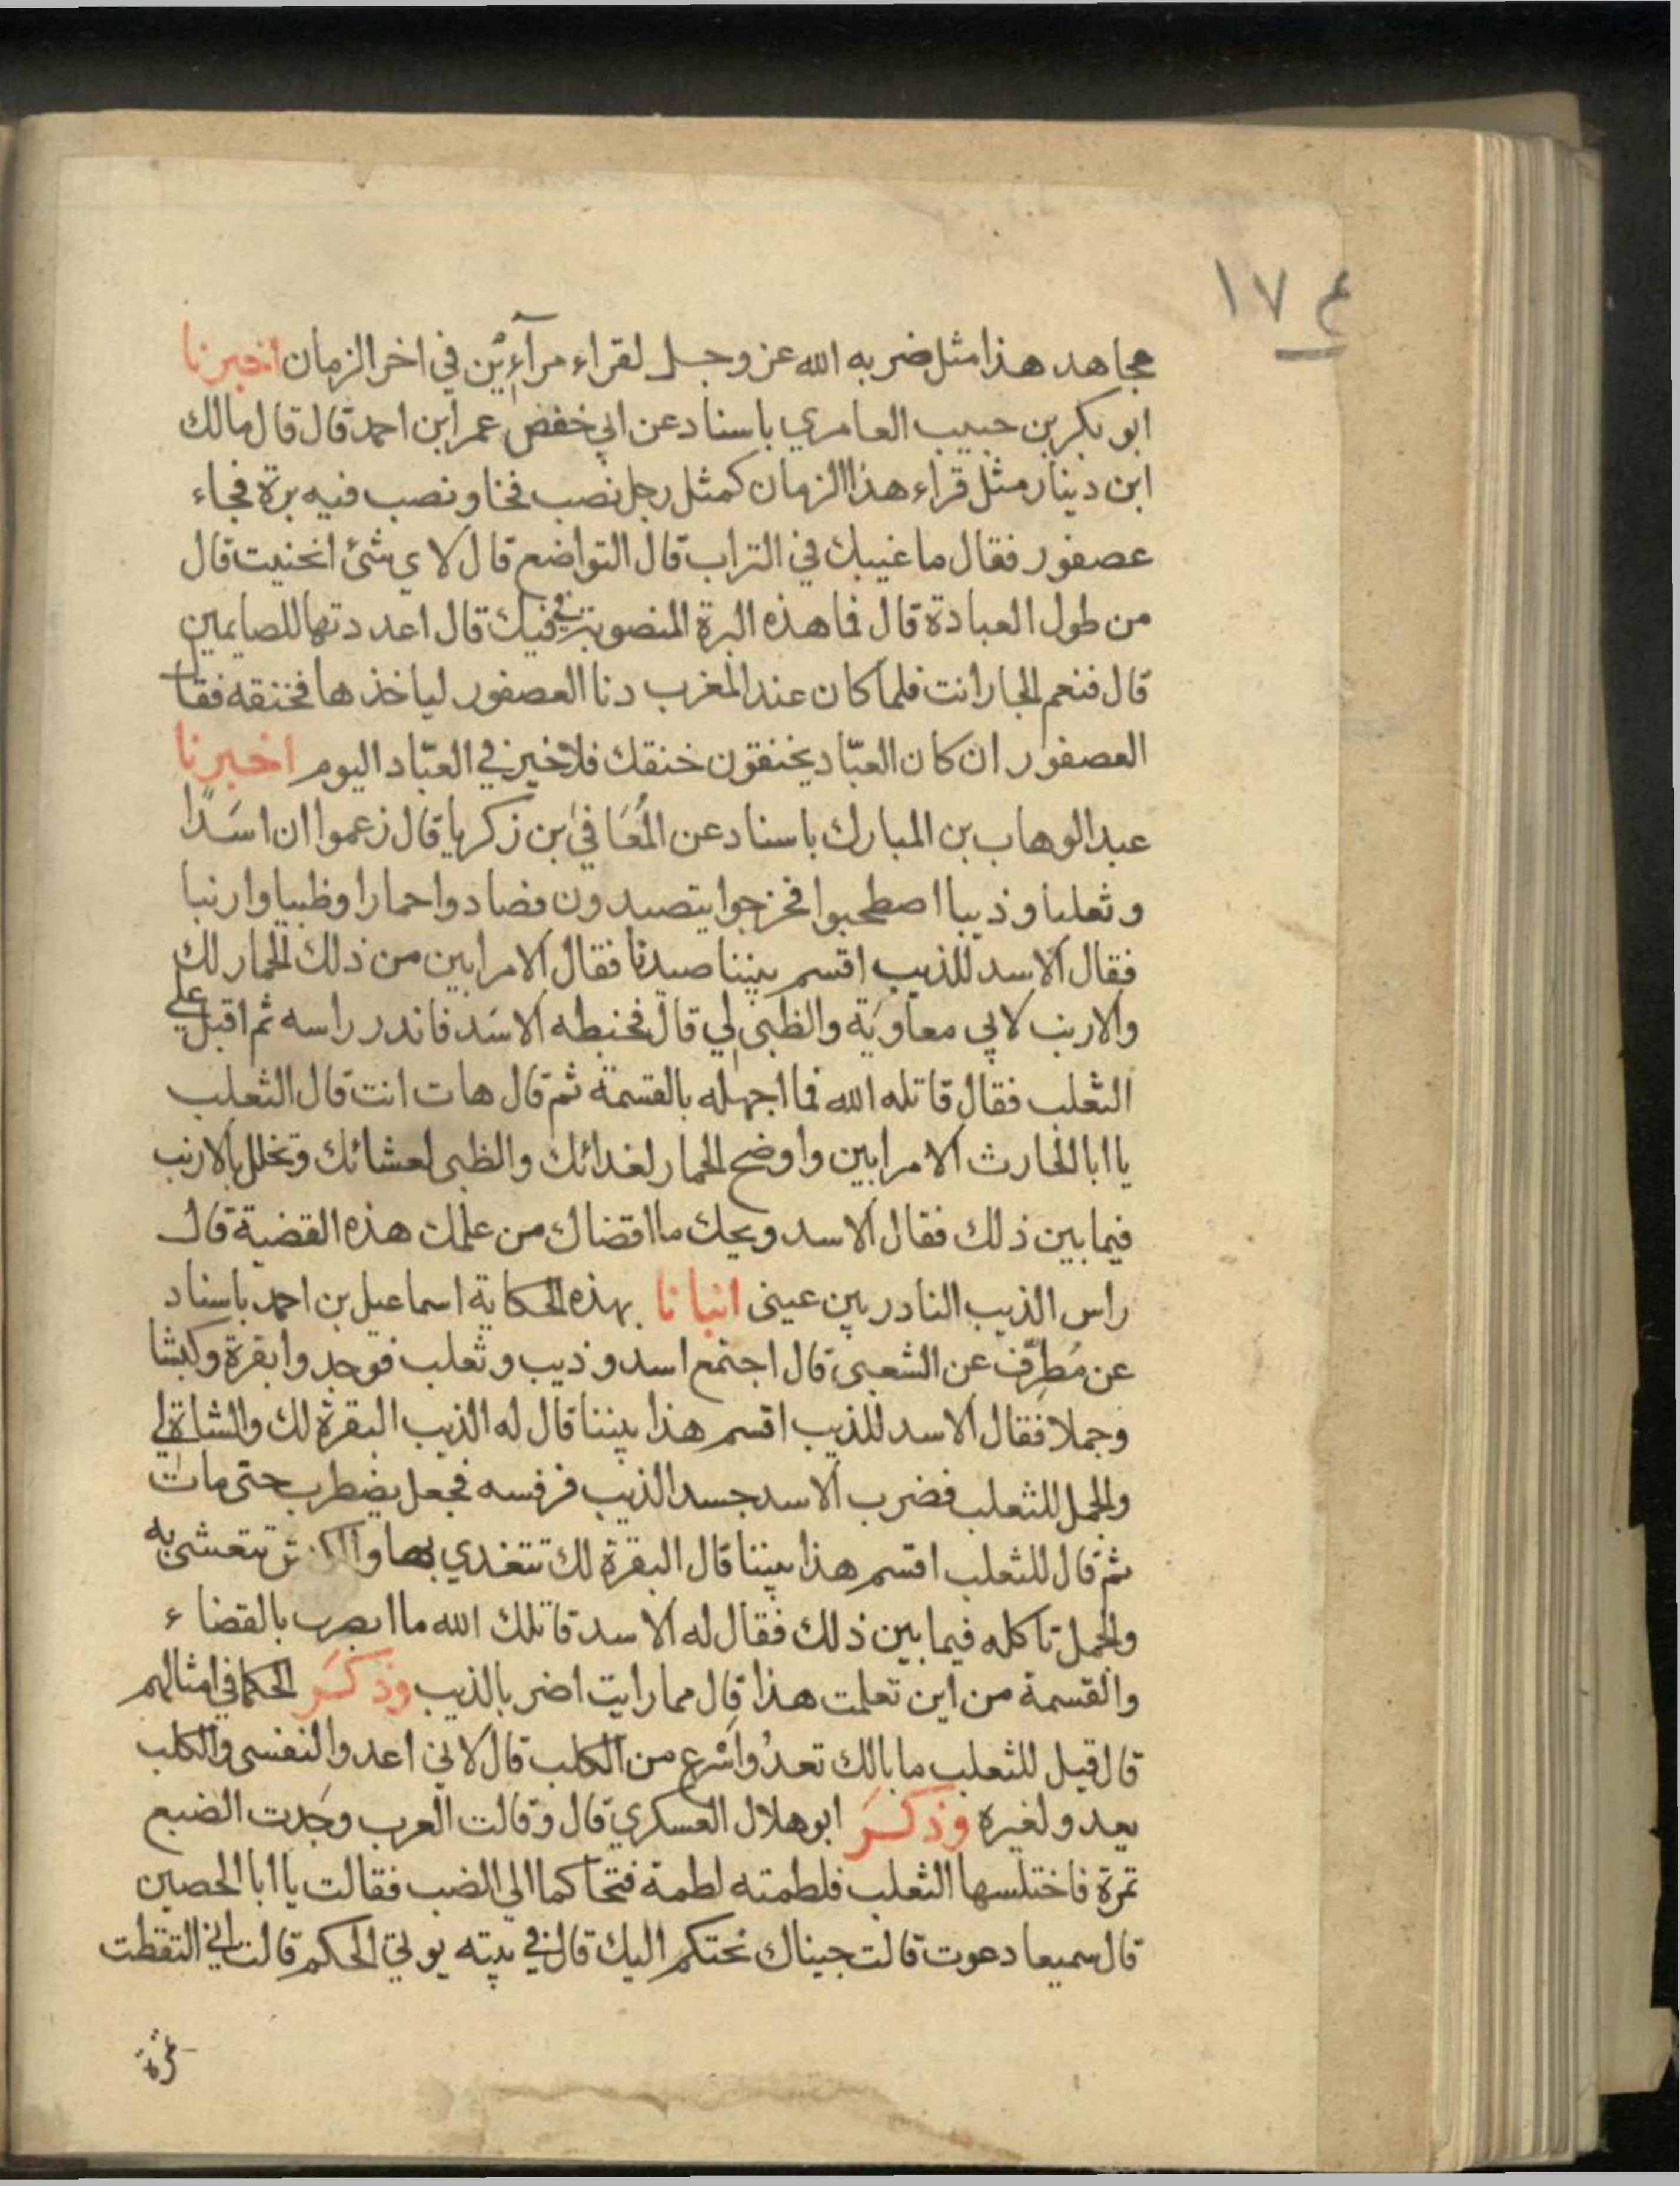 ١٧٤
مجاهد هذا مثل ضربه الله عز وجل لقراء مرآءئن في اخر الزمان اخبرنا
ابو بكر بن حبيب العامري باسناد عن ابي خفض عمر ابن احمد قال قال مالك
ابن دينار مثل قراء هذا الزمان كمثل رجل نصب فخا ونصب فيه برة فجاء
عصفور فقال ما غيبك في التراب قال التواضع قال لاي شئ انحنيت قال
من طول العبادة قال فما هذه البرة المنصوبة في فيك قال اعددتها للصايمين
قال فنعم الجار انت فلما كان عند المغرب دنا العصفور لياخذها فخنقه فقا
العصفور ان كان العبّاد يخنقون خنقك فلا خير في العبّاد اليوم اخبرنا
عبد الوهاب بن المبارك باسناد عن المُعَافيٰ بن زكريا قال زعموا ان اسَدًا
وثعلبا وذيبا اصطحبوا فخرجوا يتصيدون فصادوا حمارا وظبيا وارنبا
فقال الاسد للذيب اقسم بيننا صيدنا فقال الامر ابين من ذلك الحمار لك
والارنب لابي معاويَة والظبي لي قال فخبطه الاسَد فاندر راسه ثم اقبل علي
الثعلب فقال قاتله الله فما اجهله بالقسمة ثم قال هات انت قال الثعلب
يا ابا الحارث الامر ابين واوضح الحمار لغدائك والظبي لعشائك وتخلل بالارنب
فيما بين ذلك فقال الاسد ويحك ما اقضاك من علمك هذه القضية قال
راس الذيب النادر بين عيني انبانا بهذه الحكاية اسماعيل بن احمد باسناد
عن مُطرِّف عن الشعبي قال اجتمع اسد وذيب وثعلب فوجدوا بقرة وكبشا
وجملا فقال الاسد للذيب اقسم هذا بيننا قال له الذيب البقرة لك والشاة لي
والجمل للثعلب فضرب الاسد جسد الذيب فرفسه فجعل يضطرب حتى مات
ثم قال للثعلب اقسم هذا بيننا قال البقرة لك تتغدي بها تتعشى به
والجمل تاكله فيما بين ذلك فقال له الاسد قاتلك الله ما ابصرك بالقضاء
والقسمة من اين تعلمت هذا قال مما رايت اضر بالذيب وذكَرَ الحكما في امثالهم
قال قيل للثعلب ما بالك تعدُو اسْرع من الكلب قال لاني اعدو النفسي والكلب
يعدو لغيره وذكَرَ ابو هلال العسكري قال وقالت العرب وجَدت الضبع
تمرة فاختلسها الثعلب فلطمته لطمة فتحاكما الي الضب فقالت يا ابا الحصين
قال سميعا دعوت قالت جيناك نحتكم اليك قال في بيته يوتي الحكم قالت اني التقطت
تمرة